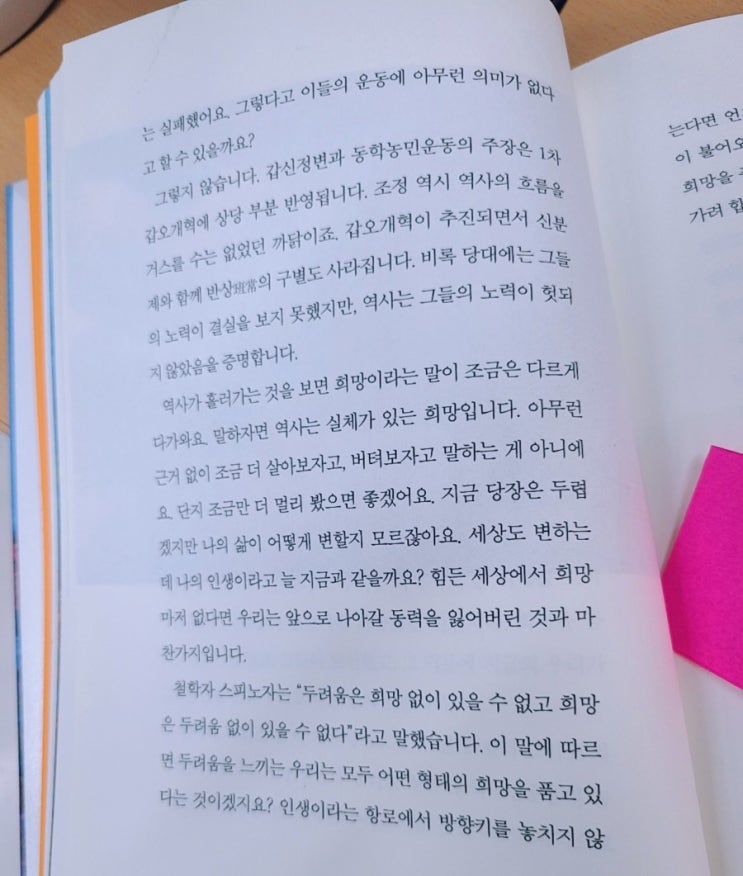 는 실패했어요. 그렇다고 이들의 운동에 아무런 의미가 없다
고 할 수 있을까요?
그렇지 않습니다. 갑신정변과 동학농민운동의 주장은 1차
갑오개혁에 상당 부분 반영됩니다. 조정 역시 역사의 흐름을
거스를 수는 없었던 까닭이죠. 갑오개혁이 추진되면서 신분
제와 함께 반상班常의 구별도 사라집니다. 비록 당대에는 그들
의 노력이 결실을 보지 못했지만, 역사는 그들의 노력이 헛되
지 않았음을 증명합니다.
역사가 흘러가는 것을 보면 희망이라는 말이 조금은 다르게
다가와요. 말하자면 역사는 실체가 있는 희망입니다. 아무런
근거 없이 조금 더 살아보자고, 버텨보자고 말하는 게 아니에
요. 단지 조금만 더 멀리 봤으면 좋겠어요. 지금 당장은 두렵
겠지만 나의 삶이 어떻게 변할지 모르잖아요. 세상도 변하는
데 나의 인생이라고 늘 지금과 같을까요? 힘든 세상에서 희망
마저 없다면 우리는 앞으로 나아갈 동력을 잃어버린 것과 마
찬가지입니다.
철학자 스피노자는 “두려움은 희망 없이 있을 수 없고 희망
은 두려움 없이 있을 수 없다”라고 말했습니다. 이 말에 따르
면 두려움을 느끼는 우리는 모두 어떤 형태의 희망을 품고 있
다는 것이겠지요? 인생이라는 항로에서 방향키를 놓치지 않
는다면 언
이 불어오
희망을
가려 합